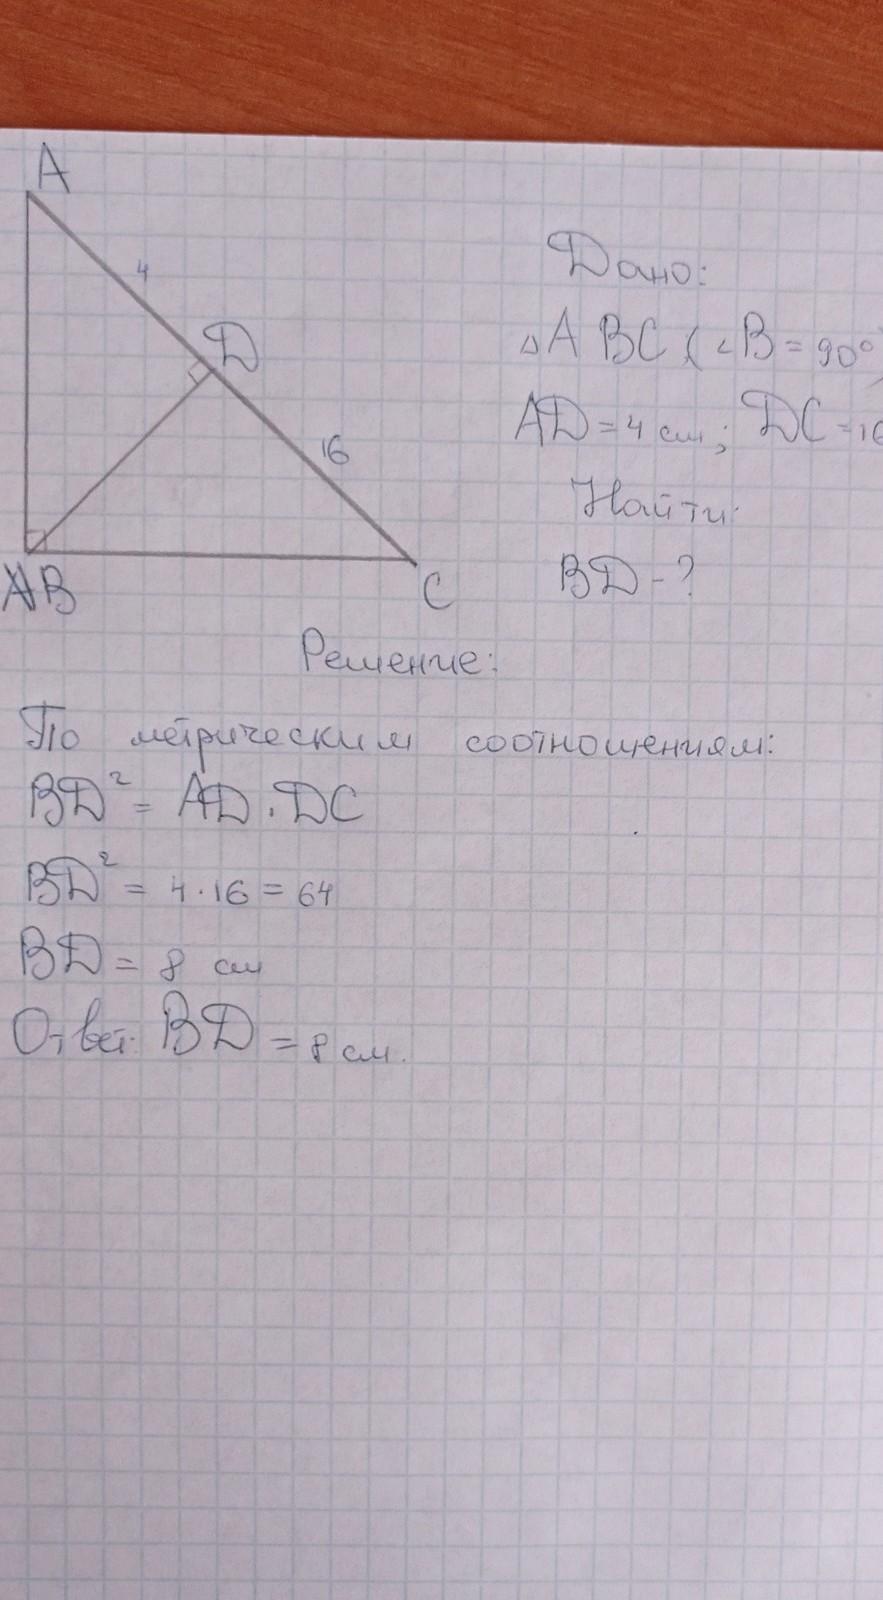 A
4
D
16
B
C
Дано:
△ABC (∠B = 90°)
AD = 4 см; DC = 16
Найти:
BD - ?
Решение:
По метрическим соотношениям:
BD² = AD · DC
BD² = 4 · 16 = 64
BD = 8 см
Ответ: BD = 8 см.